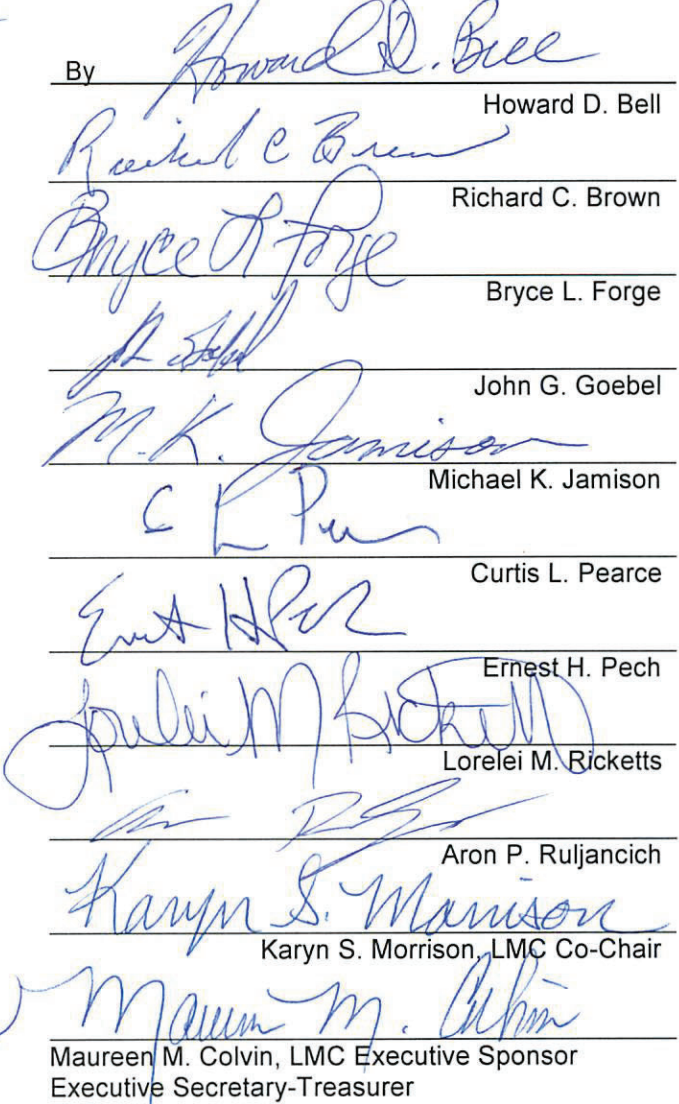 By Howard D. Bell
Howard D. Bell
Richard C Brown
Richard C. Brown
Bryce L Forge
Bryce L. Forge
John G. Goebel
M. K. Jamison
Michael K. Jamison
C L
Curtis L. Pearce
H
Ernest H. Pech
Lorelei M Ricketts
Lorelei M. Ricketts
Aron P. Ruljancich
Karyn S. Morrison
Karyn S. Morrison, LMC Co-Chair
Maureen M. Colvin
Maureen M. Colvin, LMC Executive Sponsor
Executive Secretary-Treasurer